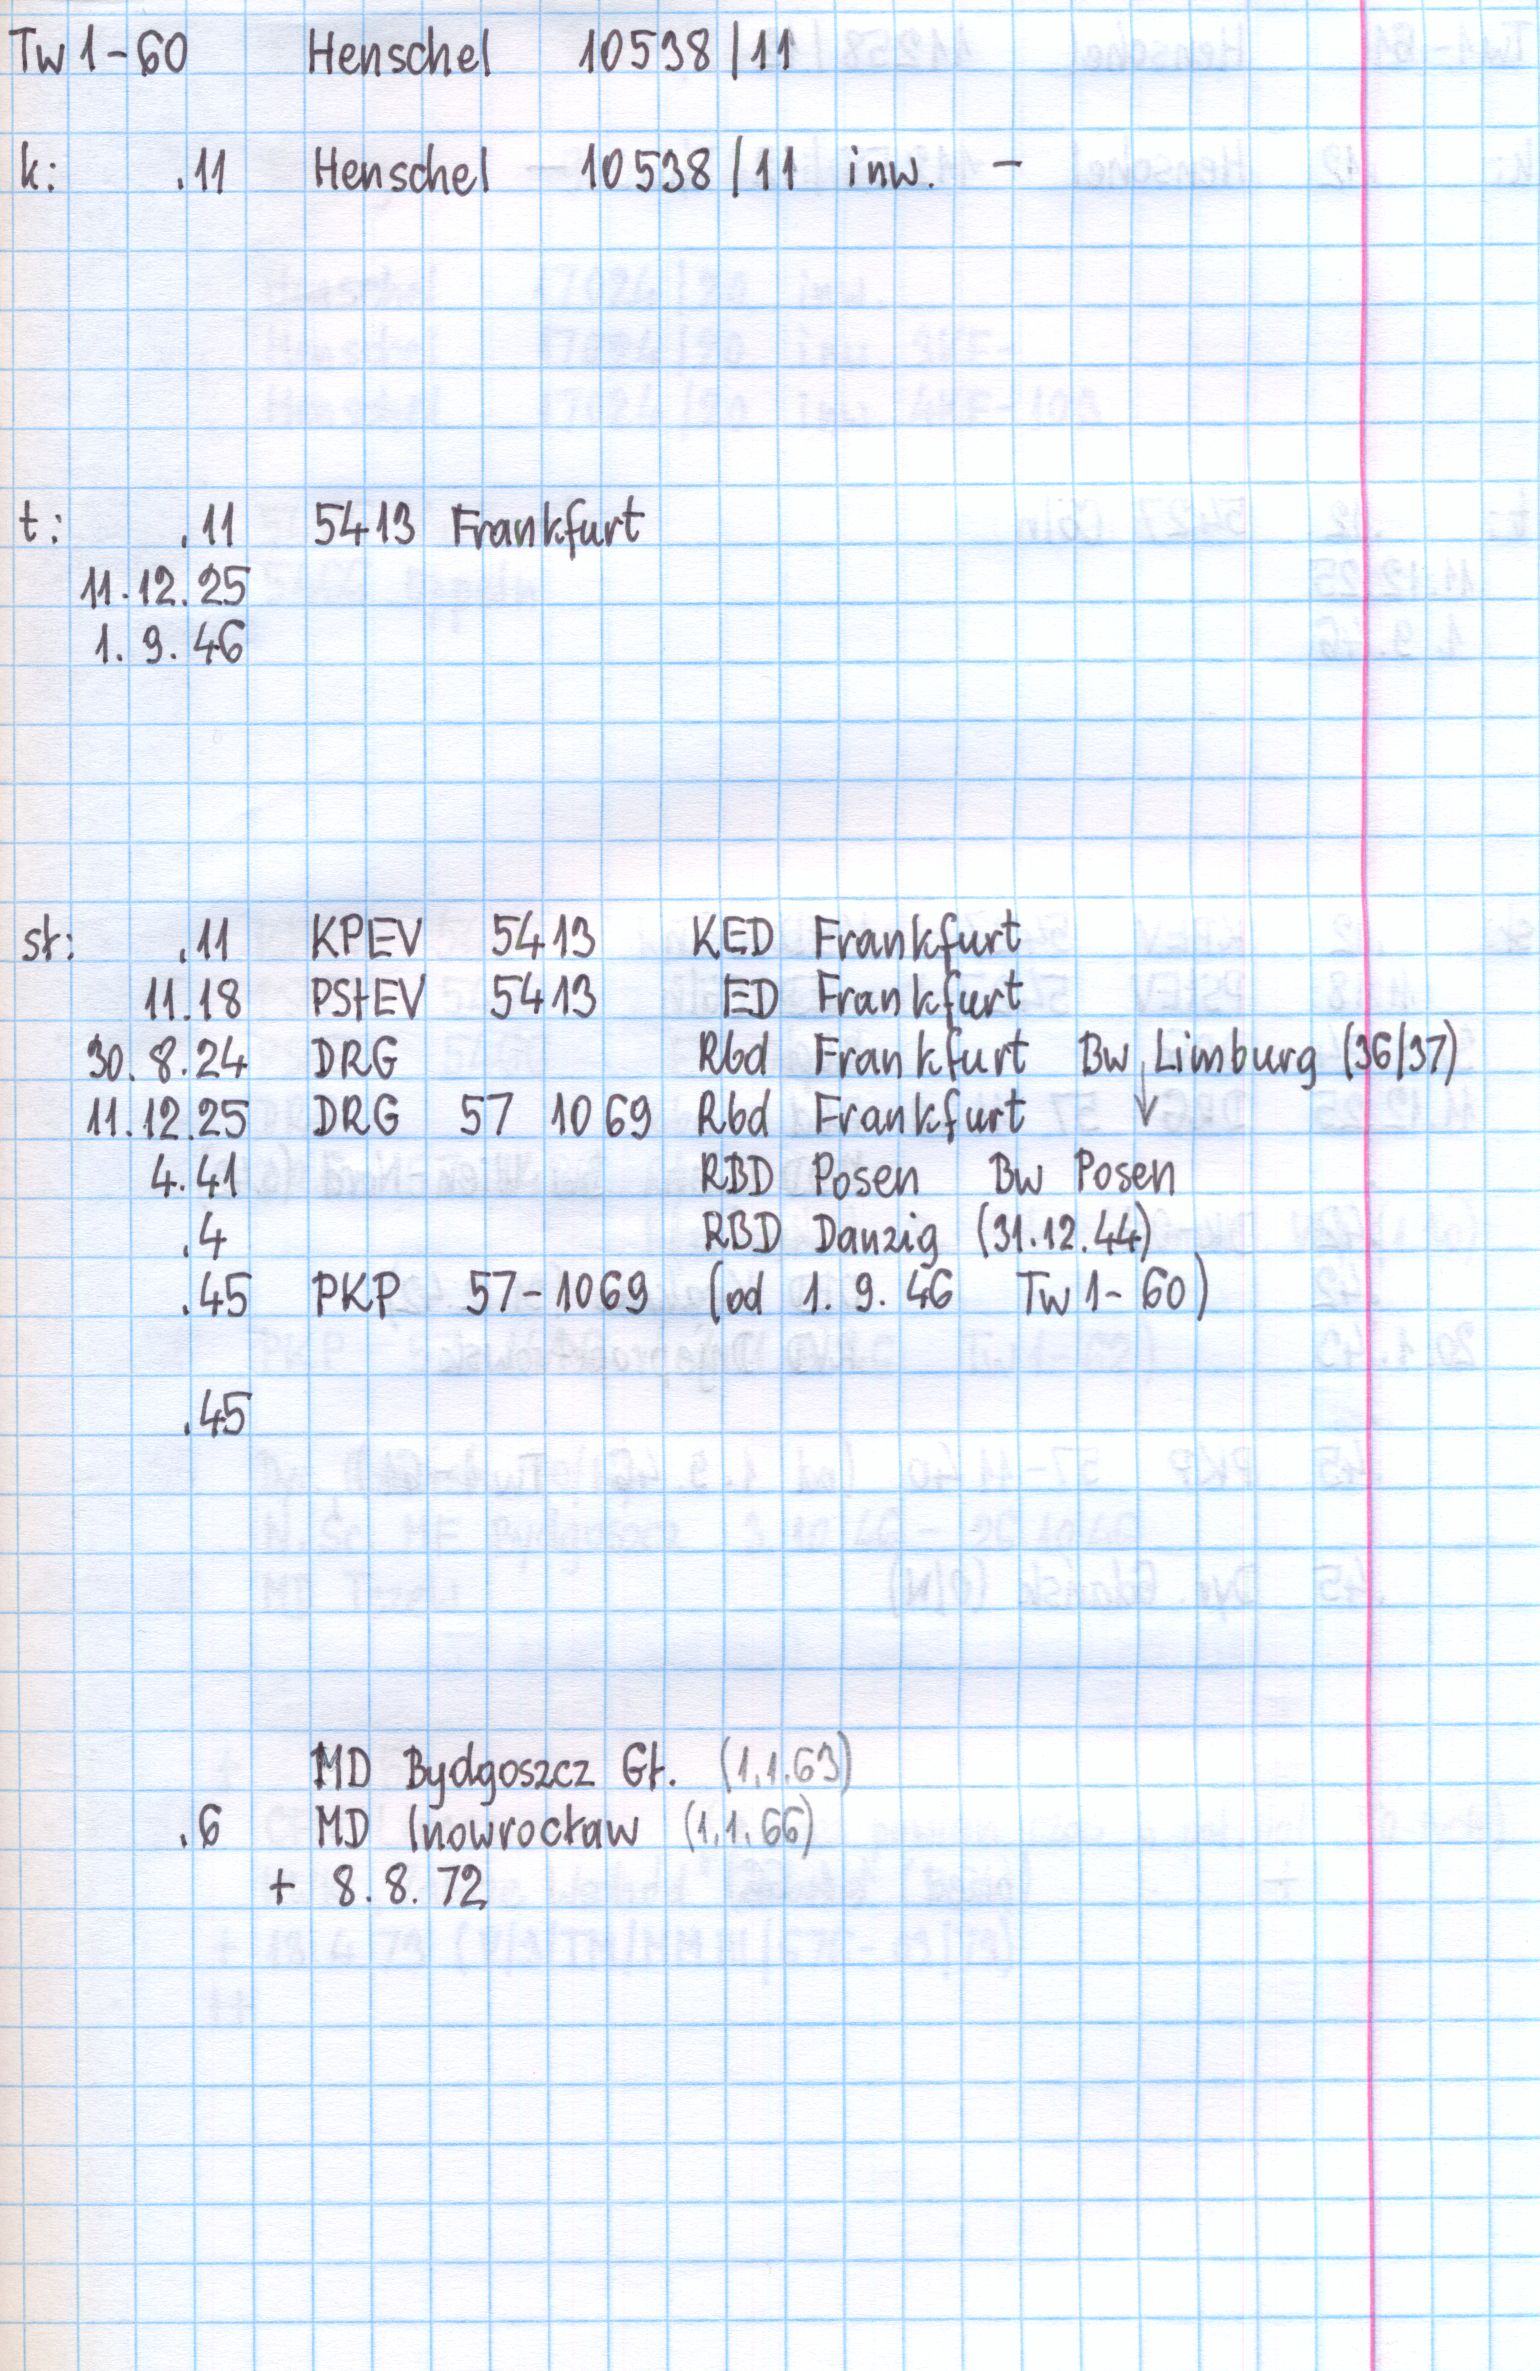 Tw1-60 Henschel 10538/11
k: .11 Henschel 10538/11 inw. -
t: .11 5413 Frankfurt
11.12.25
1.9.46
st: .11 KPEV 5413 KED Frankfurt
11.18 PStEV 5413 ED Frankfurt
30.8.24 DRG Rbd Frankfurt Bw Limburg (36/37)
11.12.25 DRG 57 1069 Rbd Frankfurt ↓
4.41 RBD Posen Bw Posen
.4 RBD Danzig (31.12.44)
.45 PKP 57-1069 (od 1.9.46 Tw1-60)
.45
MD Bydgoszcz Gł. (1.1.63)
.6 MD Inowrocław (1.1.66)
+ 8.8.72